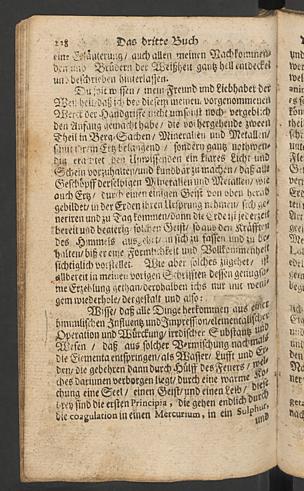 218 Das dritte Buch
eine Erklärung / auch allen meinen Nachkommen
den und Brüdern der Weißheit gantz hell entdecket
und beschrieben hinterlassen.
Du solt wissen / mein Freund und Liebhaber der
daß ich bey diesem meinem vorgenommenen
Werck der Handgriffe nicht umsonst noch vergeblich
den Anfang gemacht habe / die vorhergehende zween
Theil in Berg-Sachen / Mineralien und Metallen /
samt ihren Ertz belangend / sondern gantz nothwen-
dig den Unwissenden ein klares Licht und
Schein vorzuhalten / und kundbar zu machen / daß alle
Geschöpff derselbigen Mineralien und Metallen / wie
auch Ertz / durch einen einigen Geist von oben herab
gebildet / in der Erden ihren Ursprung nehmen / sich ge-
neriren und zu Tag kommen / dann die Erde ist jederzeit
bereit und begierig solchen Geist / so aus den Kräfften
des Himmels an sich zu fassen und zu be-
halten / biß er eine Förmlichkeit und Vollkommenheit
sichtiglich vorstellet. Wie aber solches zugehet / ist
allbereit in meinen vorigen Schrifften dessen genugsa-
me Erzehlung gethan / derohalben ichs nur mit weni-
gem wiederhole / dergestalt und also:
Wisse / daß alle Dinge herkommen aus einer
himmlischen Influentz und Impression / elementalischer
Operation und Würckung / irrdischer Substantz und
Wesen / daß aus solcher Vermischung nachmals
die Elementa entspringen / als Wasser / Lufft und Er-
den / die gebehren dann durch Hülff des Feuers / wel-
ches darinnen verborgen liegt / durch eine warme Ko-
chung eine Seel / einen Geist / und einen Leib / diese
drey sind die ersten Principia, die gehen endlich durch
die coagulation in einen Mercurium, in ein Sulphur,
und